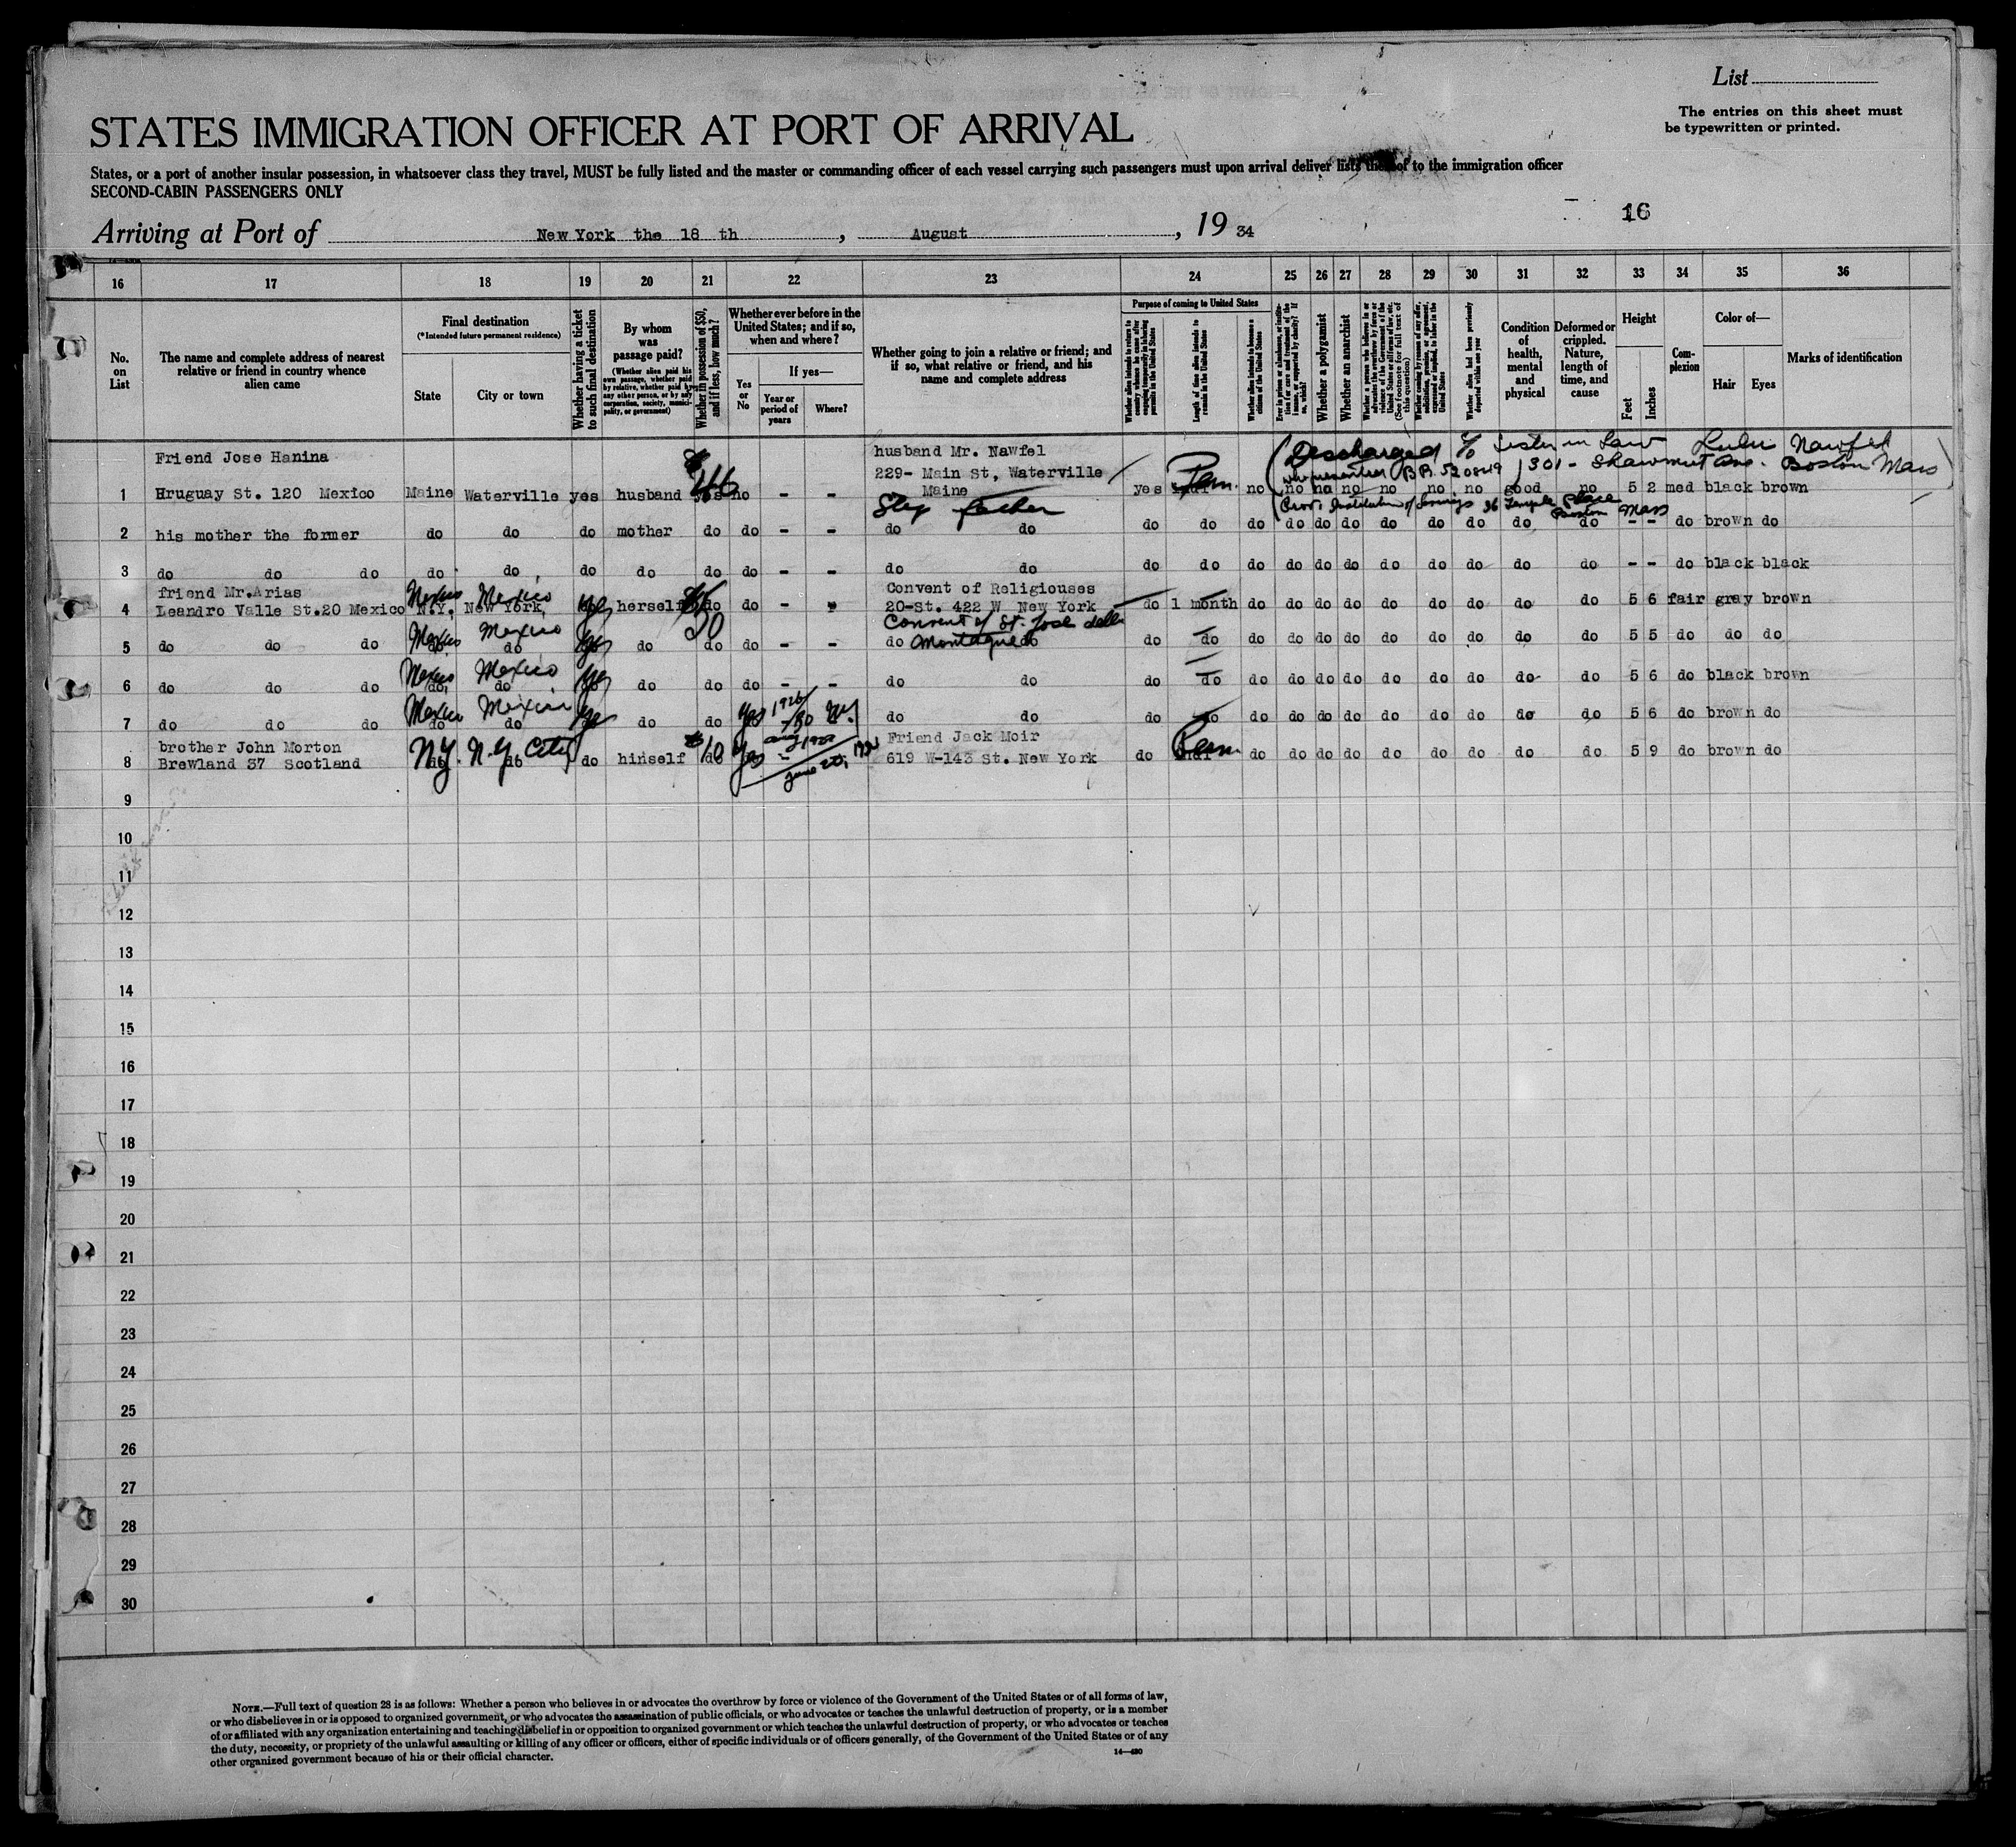 List
The entries on this sheet must
be typewritten or printed.
STATES IMMIGRATION OFFICER AT PORT OF ARRIVAL
States, or a port of another insular possession, in whatsoever class they travel, MUST be fully listed and the master or commanding officer of each vessel carrying such passengers must upon arrival deliver lists thereof to the immigration officer
SECOND-CABIN PASSENGERS ONLY
16
Arriving at Port of New York the 18 th , August , 19 34
16 17 18 19 20 21 22 23 24 25 26 27 28 29 30 31 32 33 34 35 36
No. on List
The name and complete address of nearest relative or friend in country whence alien came
Final destination
(*Intended future permanent residence)
State
City or town
Whether having a ticket to such final destination
By whom was passage paid?
(Whether alien paid his own passage, whether paid by relative, whether paid by any other person, or by any corporation, society, municipality, or government)
Whether in possession of $50, and if less, how much?
Whether ever before in the United States; and if so, when and where?
Yes or No
If yes—
Year or period of years
Where?
Whether going to join a relative or friend; and if so, what relative or friend, and his name and complete address
Purpose of coming to United States
Length of time alien intends to remain in the United States
Whether alien intends to become a citizen of the United States
Whether a polygamist
Whether an anarchist
Condition of health, mental and physical
Deformed or crippled. Nature, length of time, and cause
Height
Feet
Inches
Complexion
Color of—
Hair
Eyes
Marks of identification
Discharged c/o Sister in Law Lulu Nawfel
who presented B.B. 5208419 301 - Shawmut Ave. Boston Mass
Prov. Institution of Savings 36 Temple Place
Boston Mass
Friend Jose Hanina husband Mr. Nawfel
229- Main St, Waterville
1 Hruguay St. 120 Mexico Maine Waterville yes husband yes no - - Maine yes Perm. no no no no no no no good no 5 2 med black brown
Step father
2 his mother the former do do do mother do do - - do do do do do do do do do do do do do - - do brown do
3 do do do do do do do do do - - do do do do do do do do do do do do do - - do black black
friend Mr.Arias Mexico Mexico Convent of Religiouses
4 Leandro Valle St.20 Mexico N.Y. New York, yes herself do do - - 20-St. 422 W New York do 1 month do do do do do do do do do 5 6 fair gray brown
Mexico Mexico yes 50 Convent of St. Jose
5 do do do do do do do do - - do do do do do do do do do do do do do 5 5 do do do
Mexico Mexico yes
6 do do do do do do do do - - do do do do do do do do do do do do do 5 6 do black brown
Mexico Mexico yes yes 1926
7 do do do do do do do do do do do do do do do do do do do do 5 6 do brown do
brother John Morton N.Y. N.Y. City 10 yes Friend Jack Moir
8 Brewland 37 Scotland do do do himself do - 619 W-143 St. New York do Perm do do do do do do do do do 5 9 do brown do
9
10
11
12
13
14
15
16
17
18
19
20
21
22
23
24
25
26
27
28
29
30
NOTE.—Full text of question 28 is as follows: Whether a person who believes in or advocates the overthrow by force or violence of the Government of the United States or of all forms of law,
or who disbelieves in or is opposed to organized government, or who advocates the assassination of public officials, or who advocates or teaches the unlawful destruction of property, or is a member
of or affiliated with any organization entertaining and teaching disbelief in or opposition to organized government or which teaches the unlawful destruction of property, or who advocates or teaches
the duty, necessity, or propriety of the unlawful assaulting or killing of any officer or officers, either of specific individuals or of officers generally, of the Government of the United States or of any
other organized government because of his or their official character.
14—430